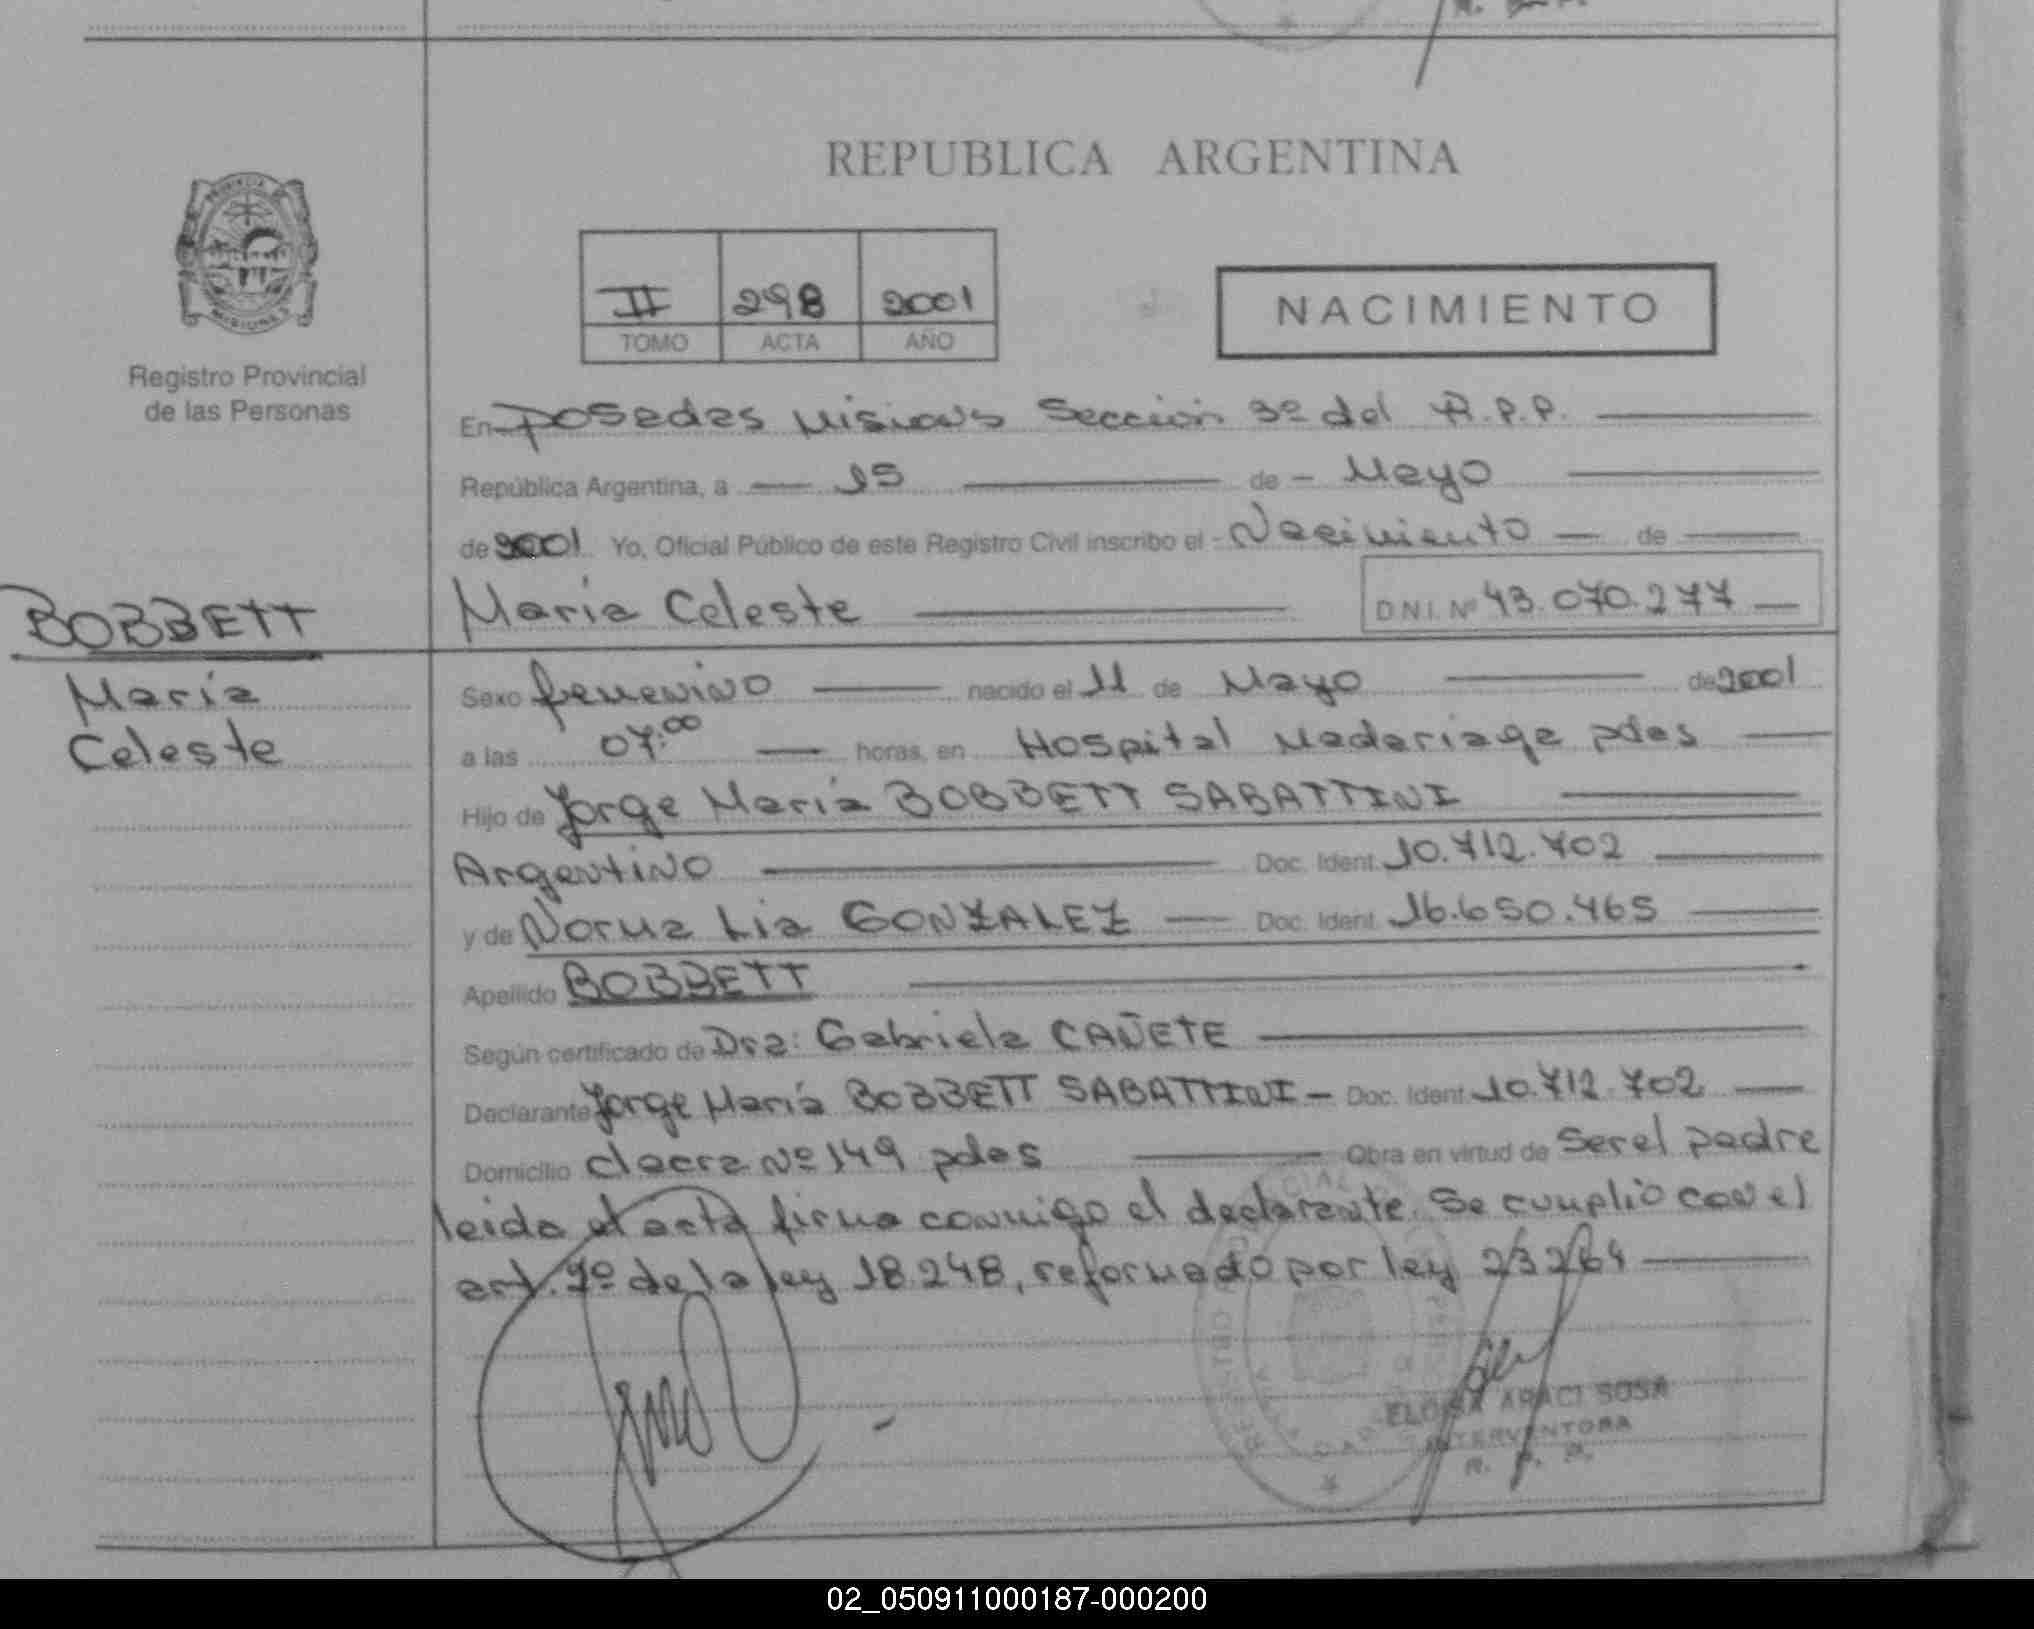 REPUBLICA ARGENTINA
PROVINCIA
MISIONES
Registro Provincial
de las Personas
II 298 2001
TOMO ACTA AÑO
NACIMIENTO
En Posadas Misiones Sección 3º del R.P.P.
República Argentina, a 15 de Mayo
de 2001 Yo, Oficial Público de este Registro Civil inscribo el Nacimiento de
María Celeste D.N.I. Nº 43.070.277
BOBBETT
María
Celeste
Sexo femenino nacido el 11 de Mayo de 2001
a las 07:00 horas, en Hospital Madariaga pdas
Hijo de Jorge María BOBBETT SABATTINI
Argentino Doc. Ident. 10.712.702
y de Norma Lia GONZALEZ Doc. Ident. 16.650.465
Apellido BOBBETT
Según certificado de Dra: Gabriela CAÑETE
Declarante Jorge María BOBBETT SABATTINI - Doc. Ident. 10.712.702
Domicilio chacra Nº 149 pdas Obra en virtud de Ser el padre
leida el acta firma conmigo el declarante. Se cumplió con el
art. 9º de la ley 18.248, reformado por ley 23264
ELOISA ARACI SOSA
INTERVENTORA
R. P. P.
02_050911000187-000200